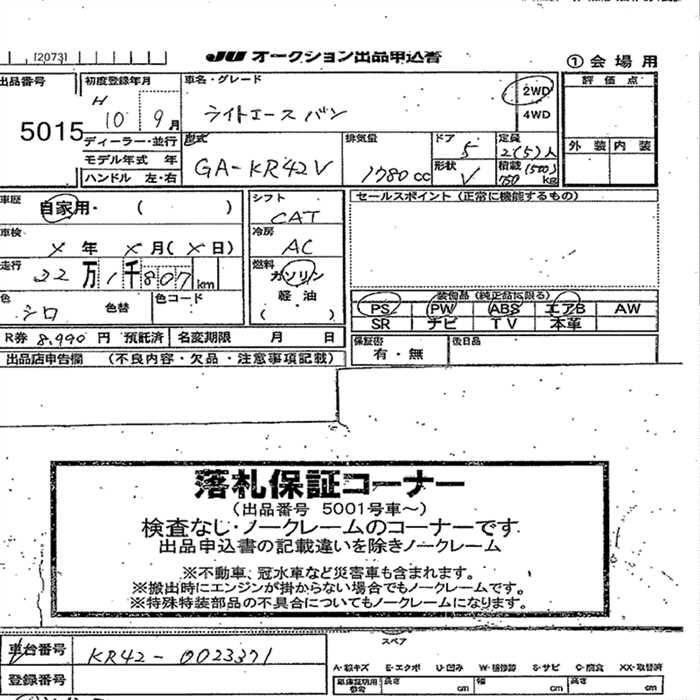 [2073]
JU オークション出品申込書
①会場用
出品番号
5015
初度登録年月
H 10 9月
ディーラー・並行
モデル年式 年
ハンドル 左・右
車名・グレード
ライトエース バン
2WD
4WD
評価点
外装 内装
型式
GA-KR42V
排気量
1780 cc
ドア
5
形状
V
定員
2(5)人
積載 (500)
750 kg
車歴
自家用・ ( )
車検
X 年 X 月( X 日)
走行
22万1千807km
色
シロ
色替
色コード
シフト
CAT
冷房
AC
燃料
ガソリン
軽・油
( )
セールスポイント (正常に機能するもの)
装備品 (純正品に限る)
PS PW ABS エアB AW
SR ナビ TV 本革
R券 8,990 円 預託済
名変期限 月 日
保証書
有・無
後日品
出品店申告欄 (不良内容・欠品・注意事項記載)
落札保証コーナー
(出品番号 5001号車〜)
検査なし・ノークレームのコーナーです
出品申込書の記載違いを除きノークレーム
※不動車、冠水車など災害車も含まれます。
※搬出時にエンジンが掛からない場合でもノークレームです。
※特殊特装部品の不具合についてもノークレームになります。
車台番号
KR42-0023371
登録番号
スペア
A-線キズ E-エクボ U-凹み W-補修跡 S-サビ C-腐食 XX-取替済
車庫証明用
参考
長さ cm 幅 cm 高さ cm